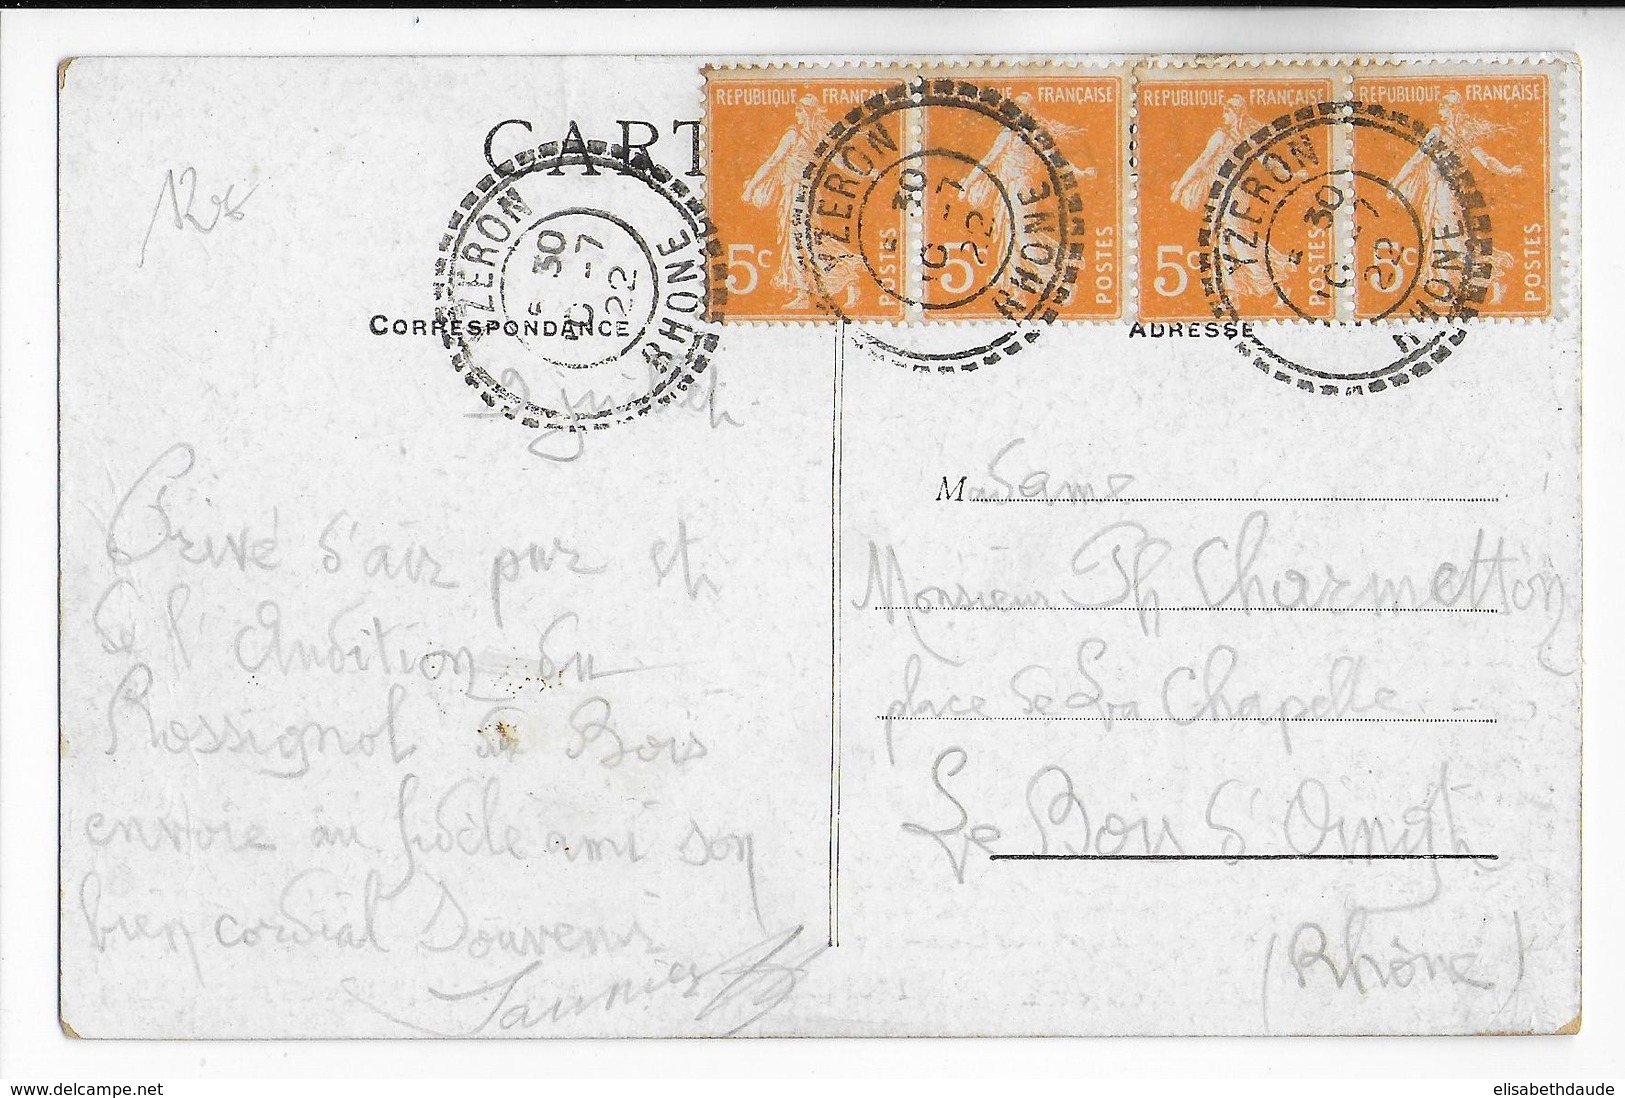 CART
REPUBLIQUE FRANÇAISE
5c POSTES
REPUBLIQUE FRANÇAISE
5c POSTES
REPUBLIQUE FRANÇAISE
5c POSTES
REPUBLIQUE FRANÇAISE
5c POSTES
YZERON
30
-7
22
RHONE
YZERON
30
10 -7
22
RHONE
YZERON
30
10 -7
22
RHONE
CORRESPONDANCE
ADRESSE
juillet
Privé d'air pur et
de l'Audition du
Rossignol du Bois
envoie au fidèle ami son
bien cordial Souvenir
Saunier
Madame
Monsieur Ph Charmetton
place de la Chapelle
Le Bois d'Oingt
(Rhône)
elisabethdaude.com
elisabethdaude